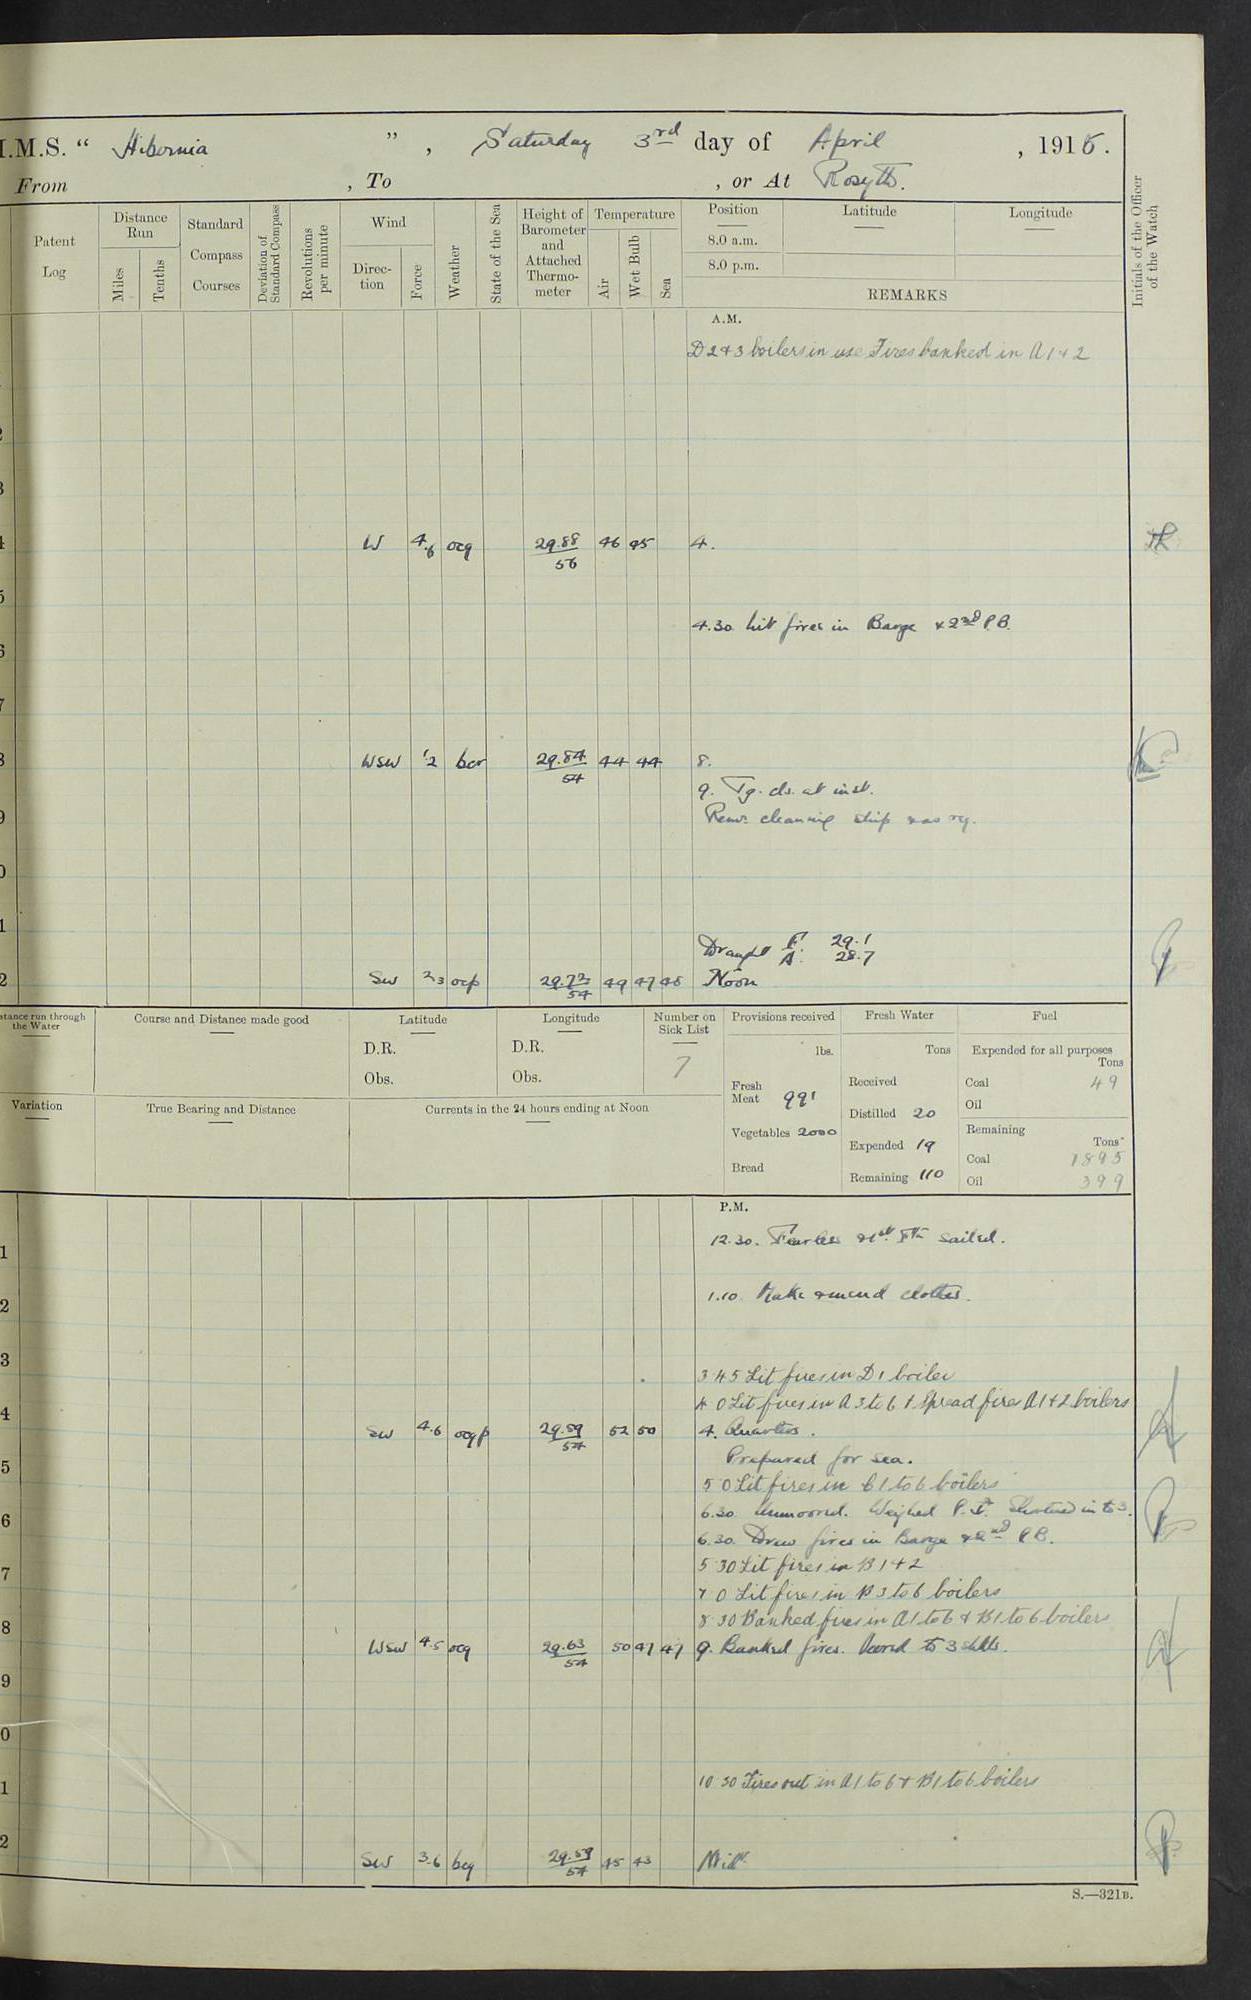 I.M.S. “ Hibernia ” , Saturday 3rd day of April , 1915.
From , To , or At Rosyth.
Patent Log
Distance Run
Miles
Tenths
Standard Compass Courses
Deviation of Standard Compass
Revolutions per minute
Wind
Direc- tion
Force
Weather
State of the Sea
Height of Barometer and Attached Thermo- meter
Temperature
Air
Wet Bulb
Sea
Position
8.0 a.m.
8.0 p.m.
Latitude
Longitude
REMARKS
Initials of the Officer of the Watch
A.M.
D 2 & 3 boilers in use Fires banked in A 1 & 2
2
3
4 W 4.6 ocq 29.88 56 46 45 4.
5
4.30. Lit fires in Barge & 2nd P.B.
6
7
8 WSW 1/2 bcr 29.84 54 44 44 8.
9. Tg. cls. at inst.
9 Remr. cleaning ship & as req.
0
1
Draught F. 29.1
A. 28.7
2 SW 2/3 ocp 29.72 54 49 47 48 Noon
stance run through the Water
Course and Distance made good
Latitude
D.R.
Obs.
Longitude
D.R.
Obs.
Number on Sick List
7
Provisions received
lbs.
Fresh Meat 991
Vegetables 2000
Bread
Fresh Water
Tons
Received
Distilled 20
Expended 19
Remaining 110
Fuel
Expended for all purposes
Tons
Coal 49
Oil
Remaining
Tons
Coal 1895
Oil 399
Variation
True Bearing and Distance
Currents in the 24 hours ending at Noon
P.M.
1 12.30. Fearless & 1st Fla sailed.
2 1.10. Make & mend clothes.
3
3 45 Lit fires in D 1 boiler
4 4 0 Lit fires in A 3 to 6 & Spread fires A 1 & 2 boilers
SW 4.6 ocqp 29.59 54 52 50 4. Quarters.
5 Prepared for sea.
5 0 Lit fires in C 1 to 6 boilers
6 6.30. Unmoored. Weighed P.A. Shortened in to 3.
6.30. Drew fires in Barge & 2nd P.B.
7 5 30 Lit fires in B 1 & 2
7 0 Lit fires in B 3 to 6 boilers
8 8 30 Banked fires in A 1 to 6 & B 1 to 6 boilers
WSW 4.5 ocq 29.63 54 50 47 47 9. Banked fires. Veered to 3 shkls.
9
0
1 10 30 Fires out in A 1 to 6 & B 1 to 6 boilers
2 SW 3.6 bcq 29.59 54 45 43 Midt.
S.—321B.